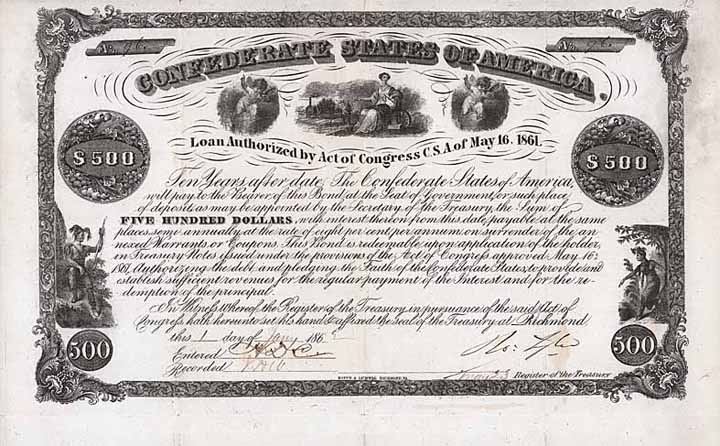 No. No.
CONFEDERATE STATES OF AMERICA.
Loan Authorized by Act of Congress C.S.A of May 16. 1861.
$500 $500
Ten Years after date, The Confederate States of America,
will pay to the Bearer of this Bond, at the Seat of Government, or such place
of deposit as may be appointed by the Secretary of the Treasury, the Sum of
FIVE HUNDRED DOLLARS, with interest thereon from this date, payable at the same
places semi-annually at the rate of eight per cent per annum, on surrender of the an
nexed Warrants or Coupons. This Bond is redeemable upon application of the holder,
in Treasury Notes issued under the provisions of the Act of Congress approved May 16:
1861, Authorizing the debt, and pledging the Faith of the Confederate States, to provide and
establish sufficient revenues for the regular payment of the Interest and for the re-
demption of the principal.
In Witness Whereof the Register of the Treasury in pursuance of the said Act of
Congress, hath hereunto set his hand & affixed the seal of the Treasury at Richmond
this 1 day of Jany 1862
500 500
Entered
Recorded
Register of the Treasury